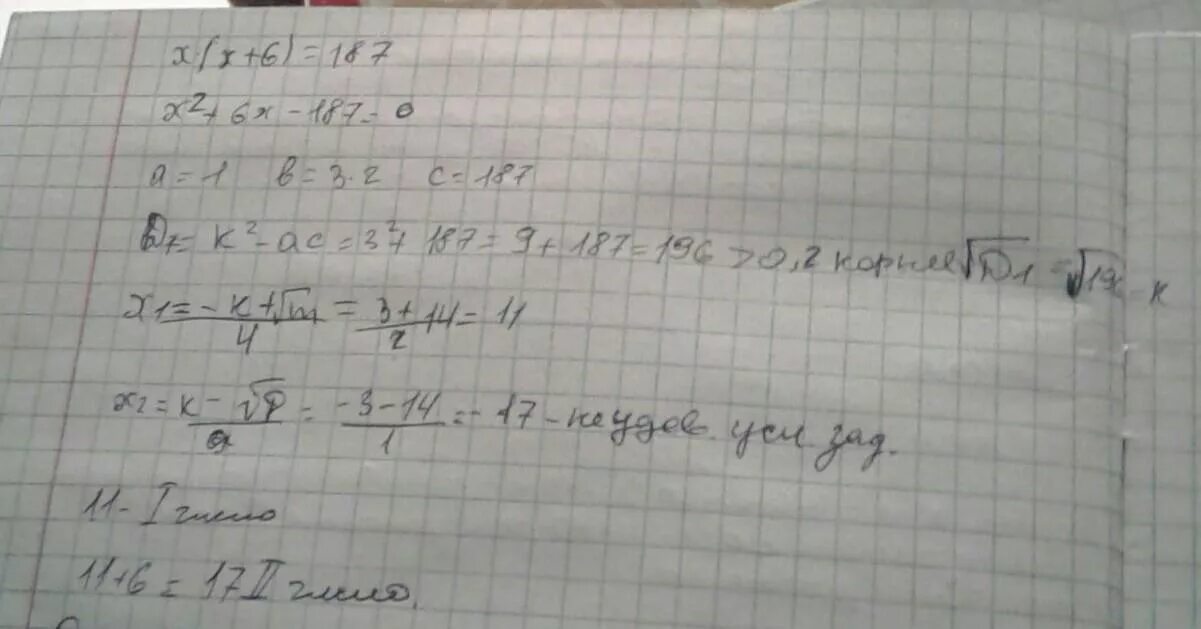 x(x+6)=187
x²+6x-187=0
a=1 b=3·2 c=187
D₁=k²-ac=3²+187=9+187=196>0, 2 корня √D1 =
x₁=-k+√ /4 = 3+14/2 = 11
x₂=k-√D/a = -3-14/1 = -17 - не удов. усл зад.
11- I число
11+6=17 II число.